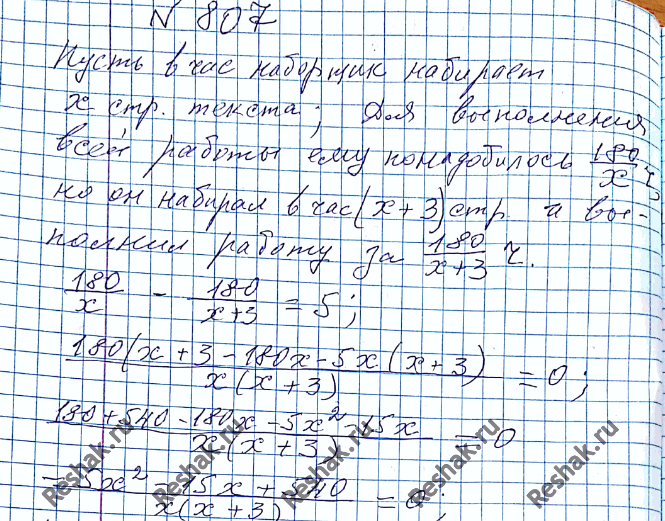 N 807
Пусть в час наборщик набирает
x стр. текста; Для выполнения
всей работы ему понадобилось 180/x ч,
но он набирал в час (x+3) стр. и вы-
полнил работу за 180/(x+3) ч.
180/x - 180/(x+3) = 5;
180(x+3-180x-5x(x+3)/x(x+3) = 0;
180+540-180x-5x²-15x/x(x+3) = 0
-5x²-15x+540/x(x+3) = 0;
Reshak.ru
Reshak.ru
Reshak.ru
Reshak.ru